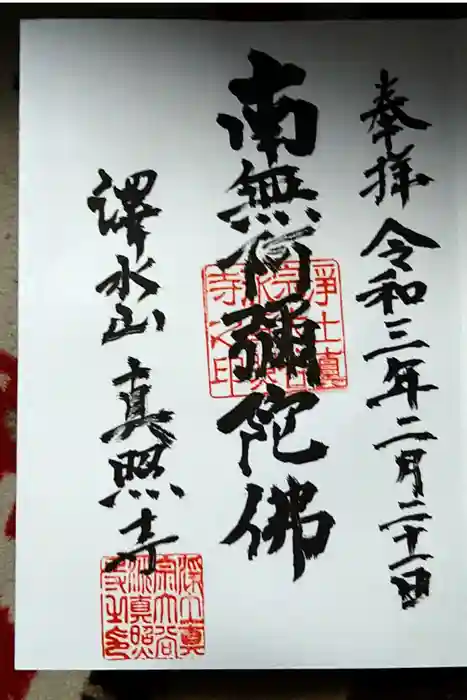 奉拝 令和三年二月二十一日
南無阿彌陀佛
澤水山 真照寺
淨土真
宗大谷
派真照